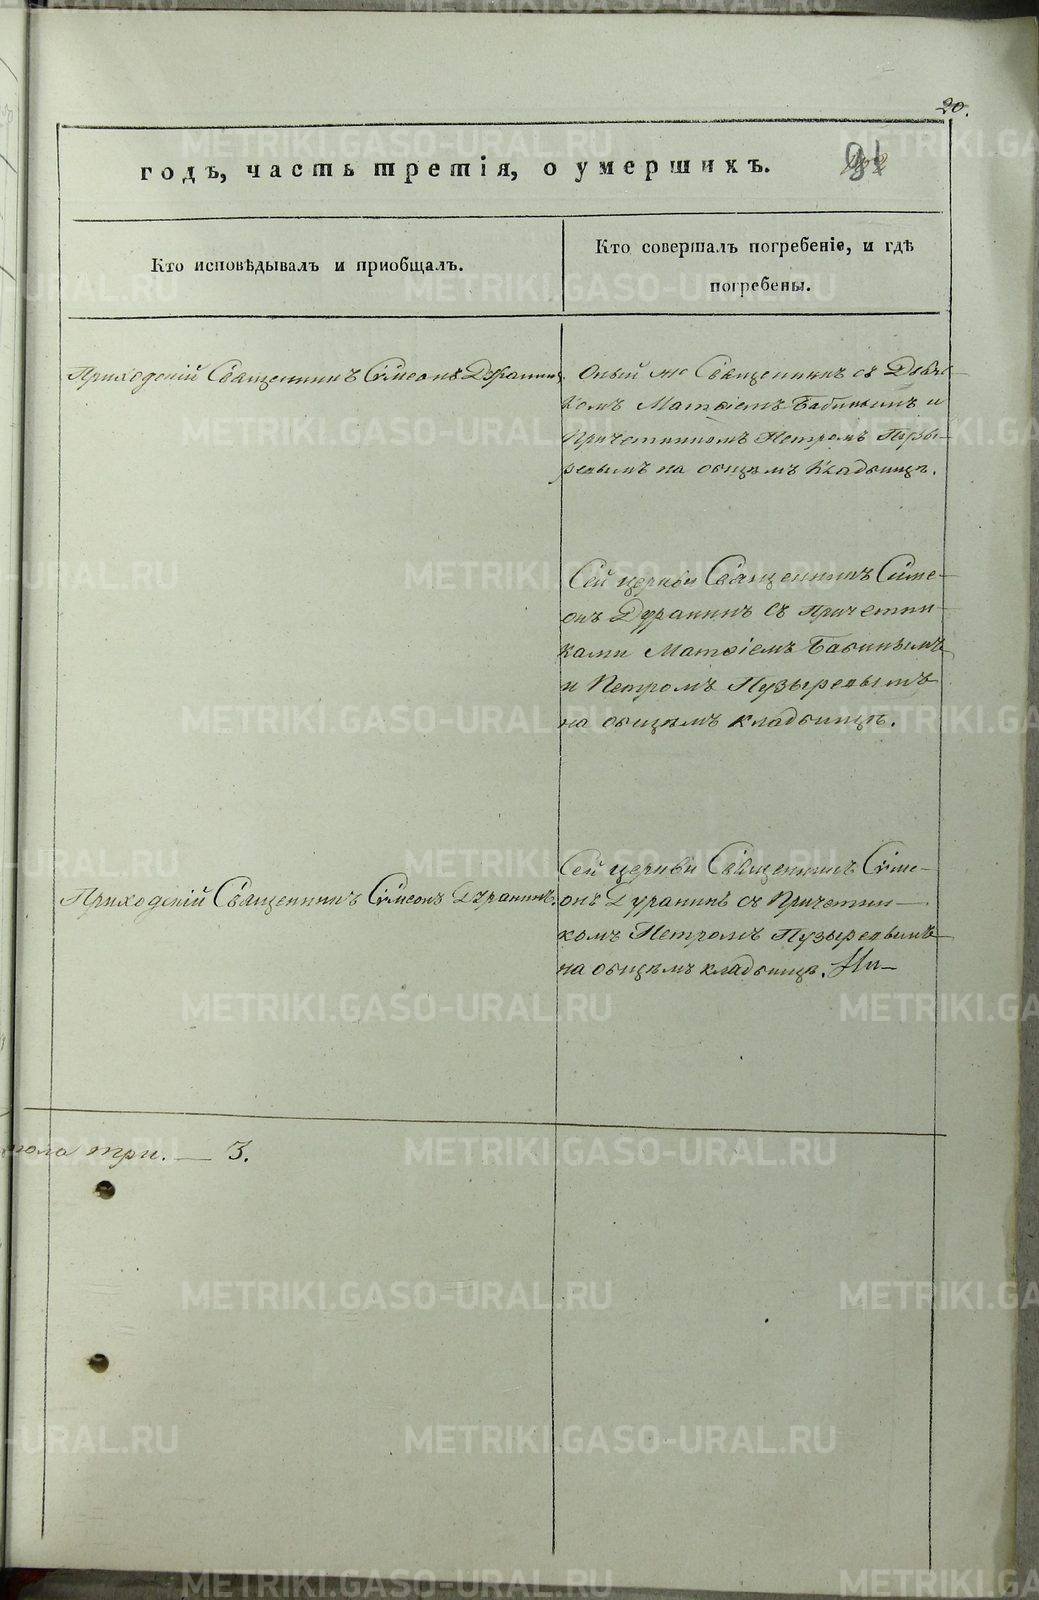 20.
годъ, часть третія, о умершихъ.
Кто исповѣдывалъ и пріобщалъ.
Кто совершалъ погребеніе, и гдѣ
погребены.
Приходскій Священникъ Сѵмеонъ Дуранинъ.
Оный же Священникъ съ Дьяч-
комъ Матѳіемъ Бабинымъ и
Причетникомъ Петромъ Пузы-
ревымъ на общемъ Кладбищѣ.
Сей церкви Священникъ Сѵме-
онъ Дуранинъ съ Причетни-
ками Матѳіемъ Бабинымъ
и Петромъ Пузыревымъ
на общемъ кладбищѣ.
Приходскій Священникъ Сѵмеонъ Дуранинъ.
Сей церкви Священникъ Сѵме-
онъ Дуранинъ съ Причетни-
комъ Петромъ Пузыревымъ
на общемъ кладбищѣ.
пола три. — 3.
METRIKI.GASO-URAL.RU